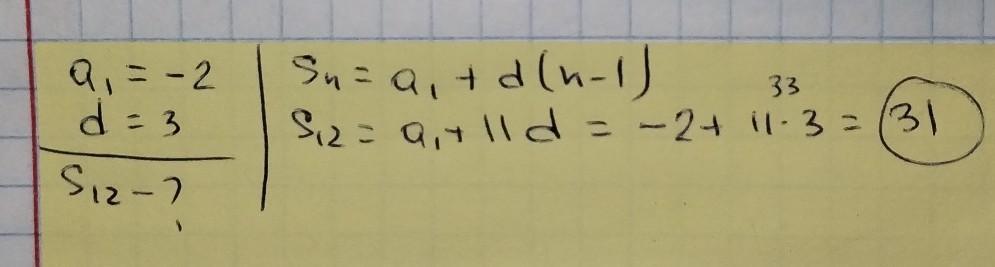 a₁ = -2
d = 3
S₁₂ - ?
Sn = a₁ + d(n-1)
33
S₁₂ = a₁ + 11d = -2 + 11·3 = 31